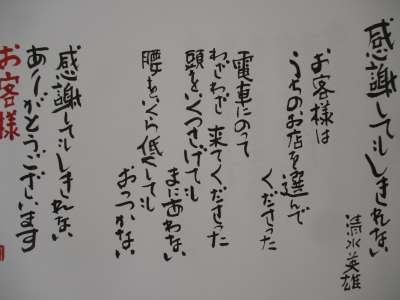 感謝してもしきれない
清水英雄
お客様は
うちのお店を選んで
くださった
電車にのって
わざわざ来てくださった
頭をいくつさげても
まにあわない
腰をいくら低くしても
おっつかない
感謝してもしきれない
ありがとうございます
お客様